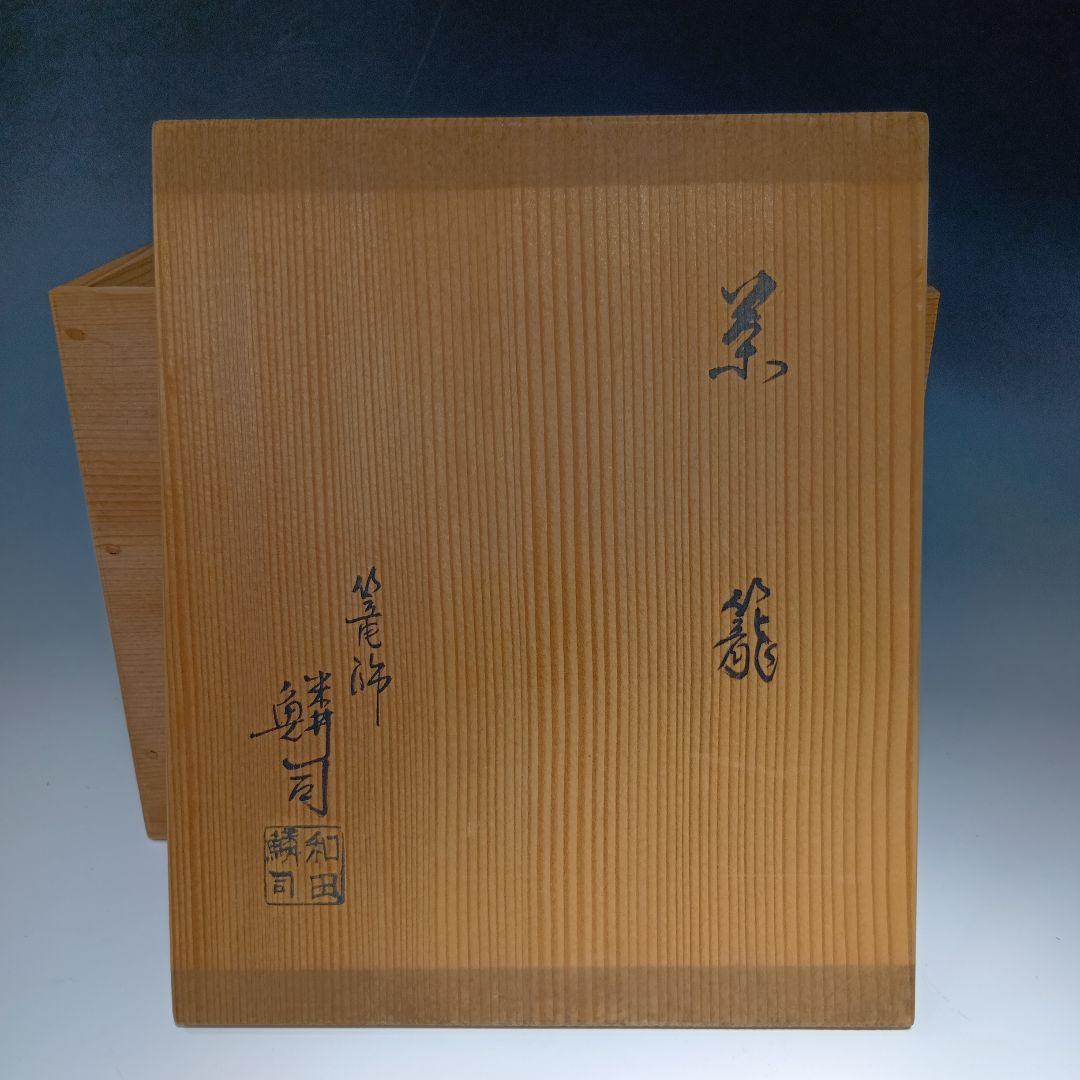 茶籠
篭師
鱗司
和田
鱗司